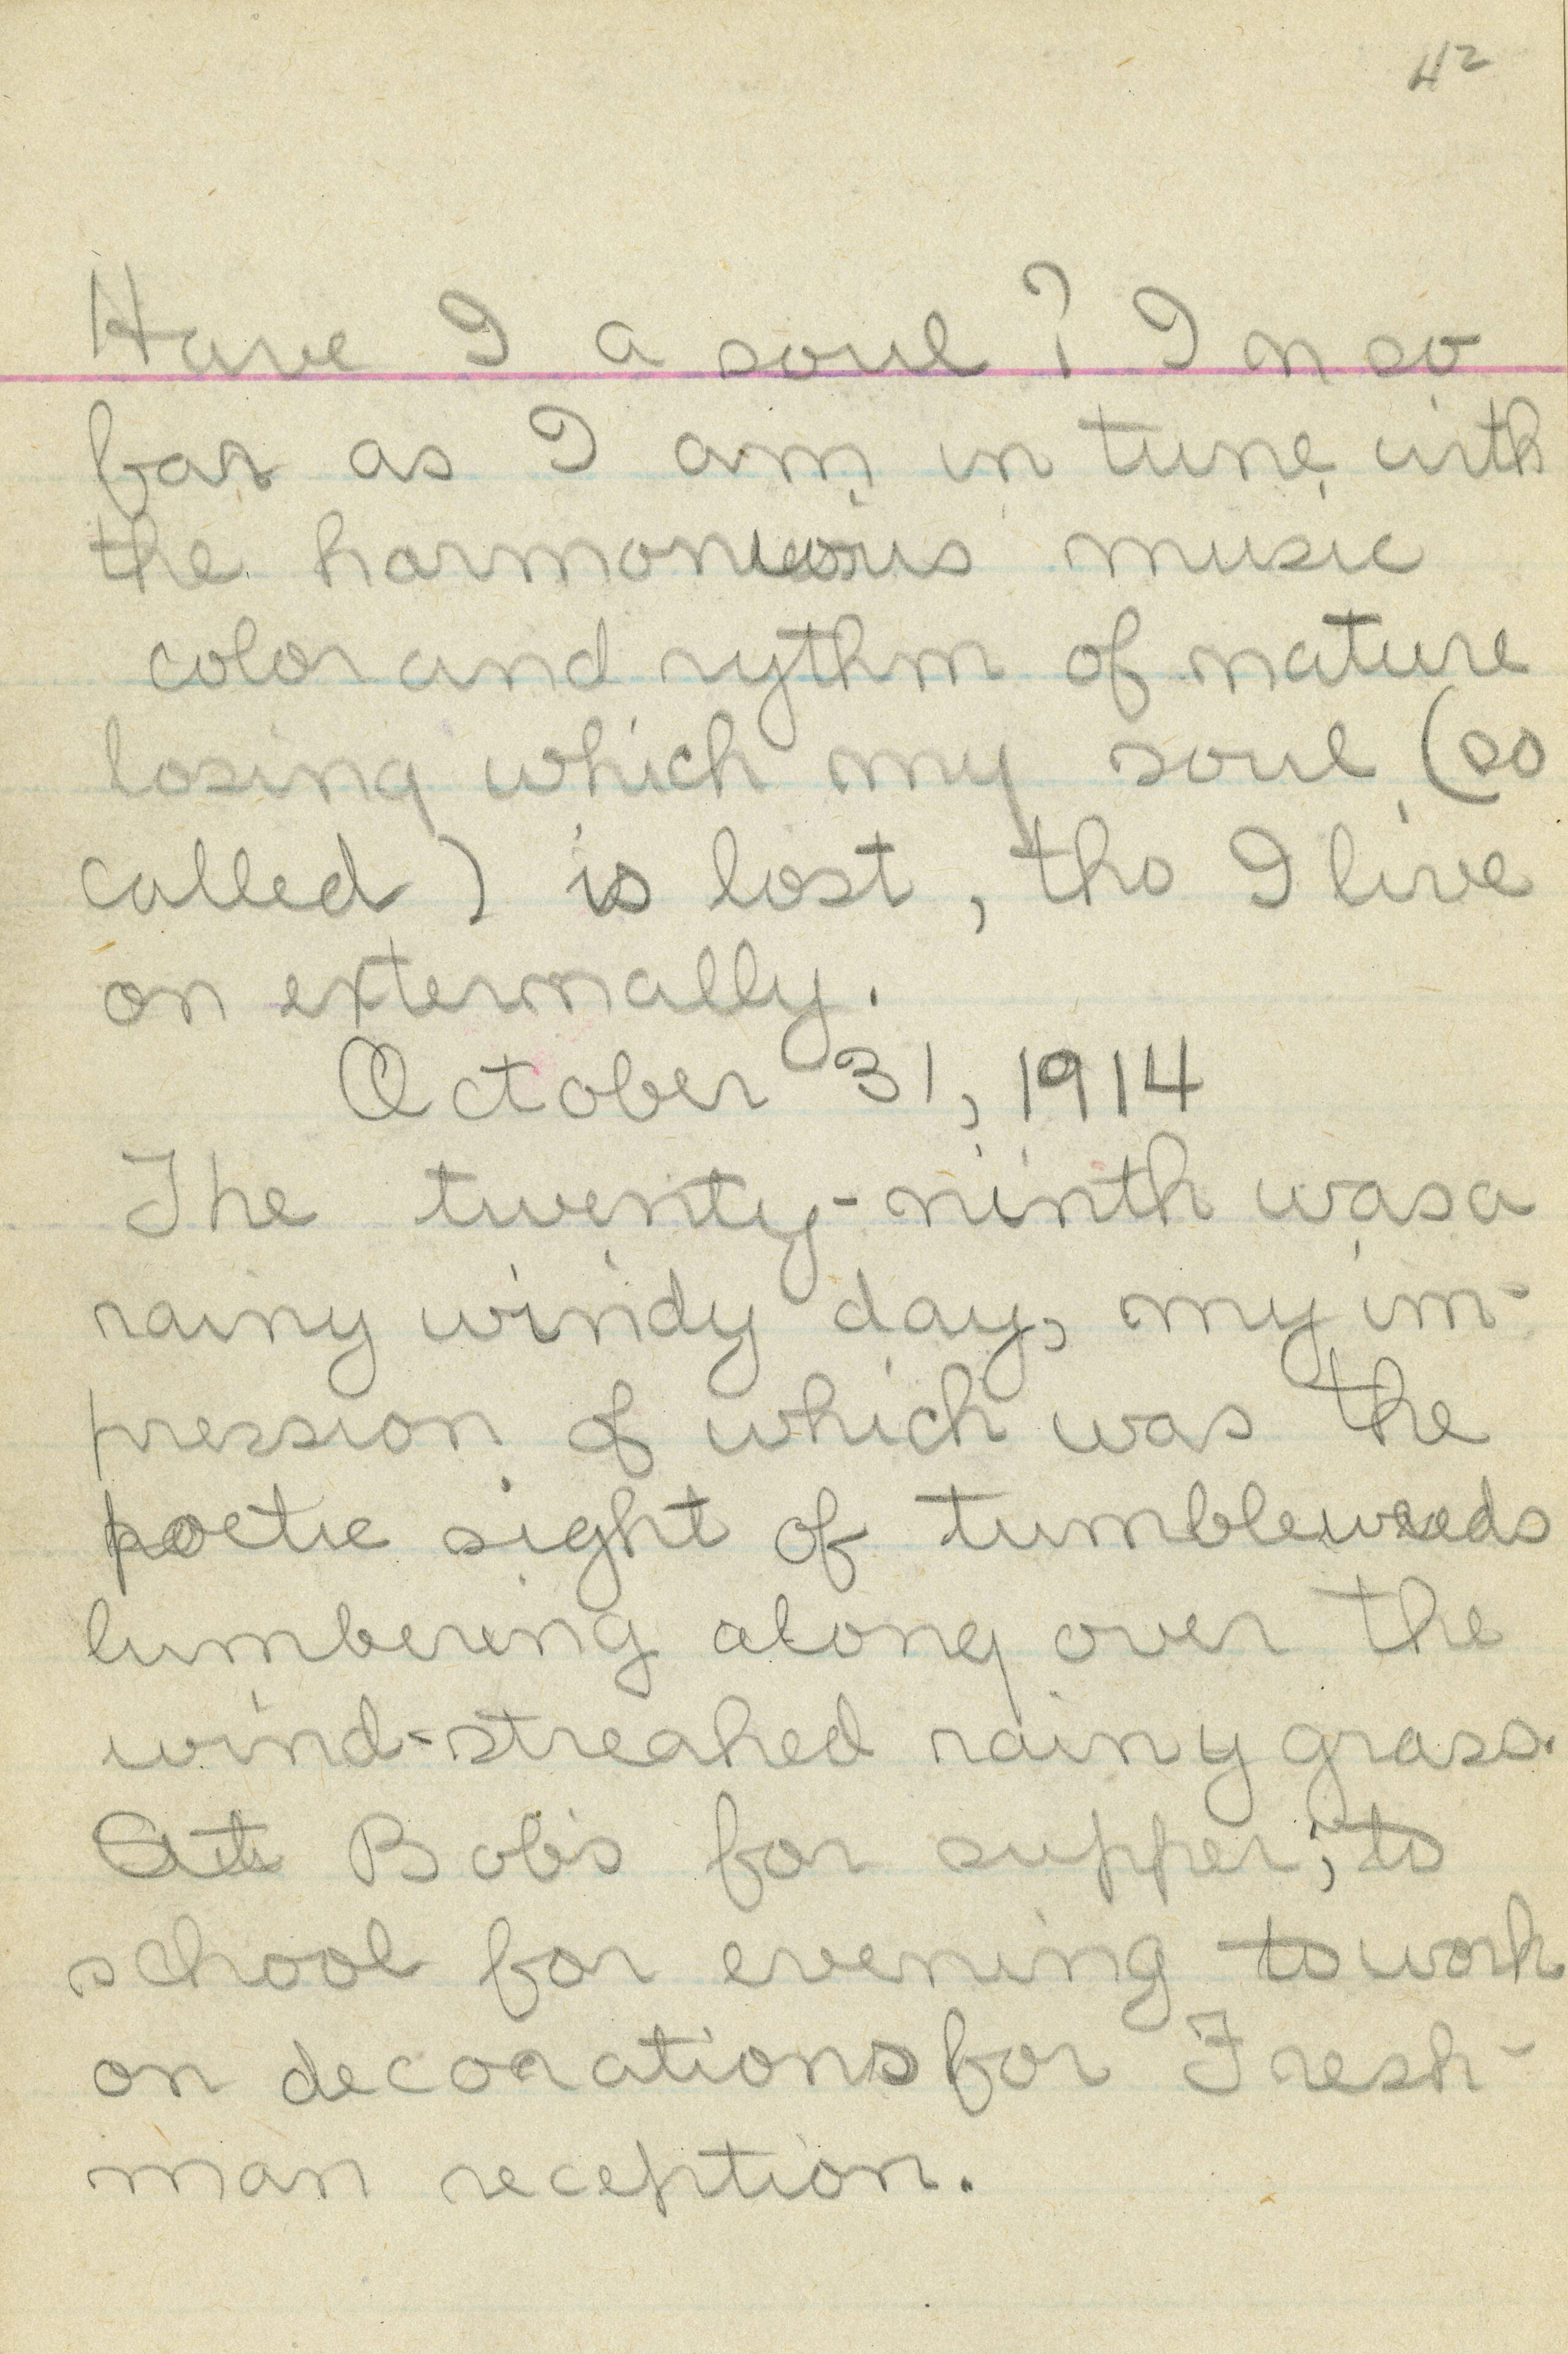 42
Have I a soul? In so
far as I am in tune with
the harmonious music
color and rythm of nature
losing which my soul (so
called) is lost, tho I live
on externally.
October 31, 1914
The twenty-ninth was a
rainy windy day, my im-
pression of which was the
poetic sight of tumbleweeds
lumbering along over the
wind-streaked rainy grass.
At Bob's for supper; to
school for evening to work
on decorations for Fresh-
man reception.